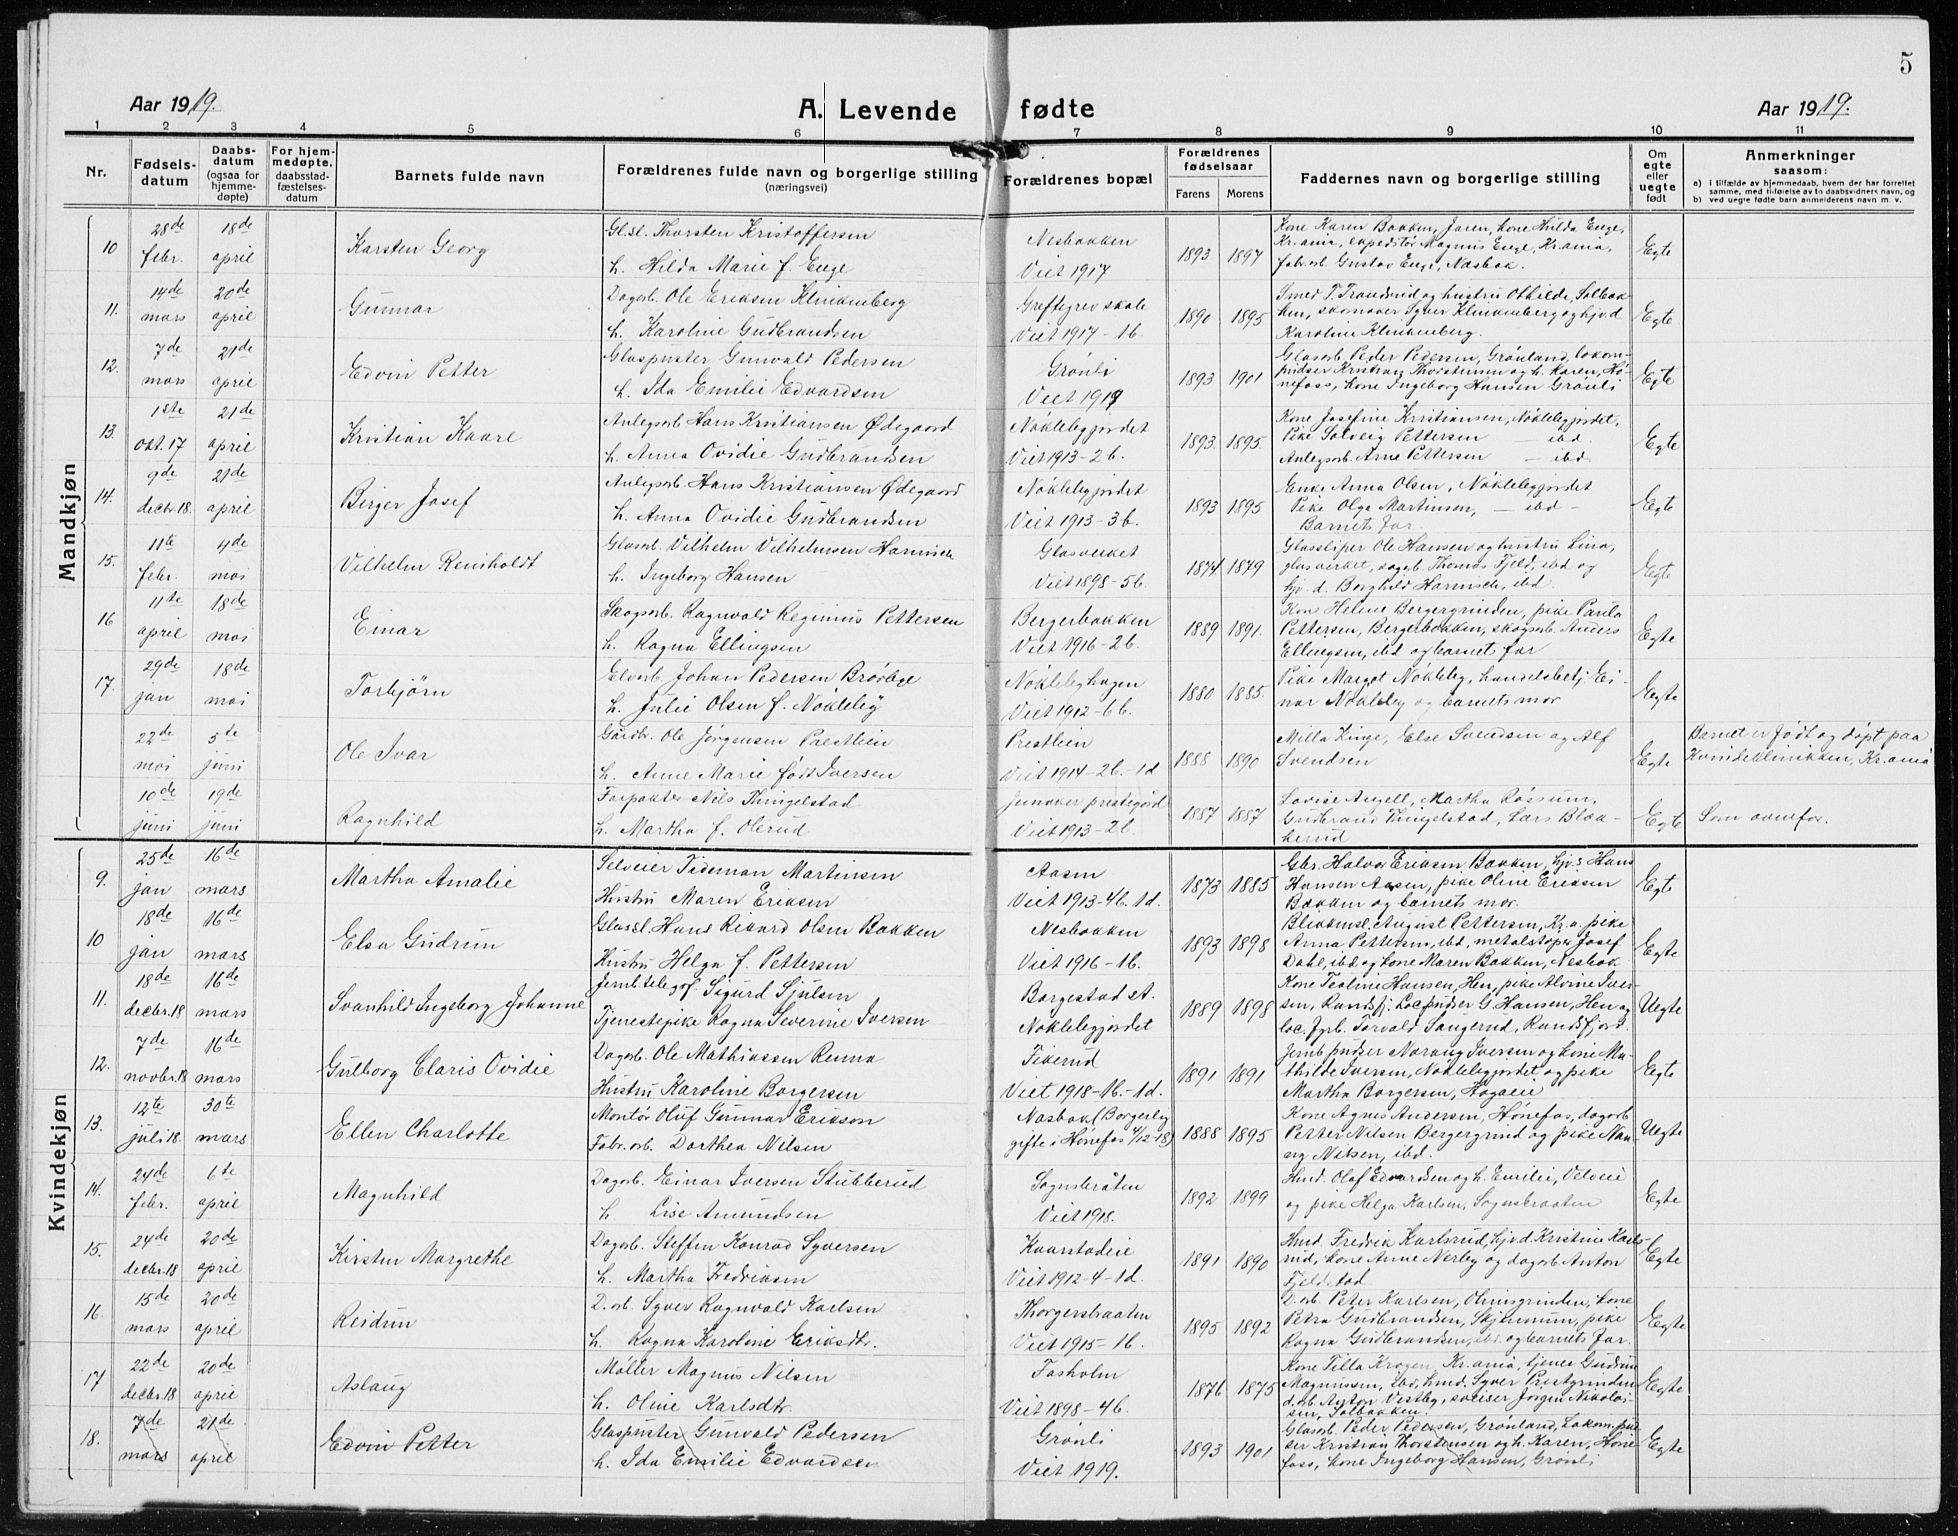 5
Aar 1919.
A. Levende fødte
Aar 1919.
1 2 3 4 5 6 7 8 9 10 11
Nr.
Fødsels-
datum
Daabs-
datum
(ogsaa for
hjemme-
døpte)
For hjem-
medøpte,
daabsstad-
fæstelses-
datum
Barnets fulde navn
Forældrenes fulde navn og borgerlige stilling
(næringsvei)
Forældrenes bopæl
Forældrenes
fødselsaar
Farens Morens
Faddernes navn og borgerlige stilling
Om
egte
eller
uegte
født
Anmerkninger
saasom:
a) i tilfælde av hjemmedaab, hvem der har forrettet
samme, med tilføielse av to daabsvidners navn, og
b) ved uegte fødte barn anmelderens navn m. v.
Mandkjøn
10 28de febr. 18de april Karsten Georg
Glsl. Thorsten Kristoffersen
h. Hilda Marie f. Enge
Nesbakken
Viet 1917
1893 1897
Kone Karen Bakken, Jaren, kone Hulda Enge,
Kr.ania, expeditør Magnus Enge, Kr.ania,
fabr.arb. Gustav Enge, Næsbak.
Egte
11. 14de mars 20de april Gunnar
Dagarb. Ole Eriksen Klinkenberg
h. Karoline Gudbrandsen
Greftegrev skole
Viet 1917-1b.
1890 1895
Smed T. Trandrud og hustru Othilde, Solbak-
ken, skomaker Syver Klinkenberg og hjv.d
Karoline Klinkenberg.
Egte
12. 7de mars 21de april Edvin Petter
Glaspuster Gunvald Pedersen
h. Ida Emilie Edvardsen
Grønli
Viet 1919
1893 1901
Glasarb. Peder Pedersen, Grønland, lokom-
pudser Kristian Thorstensen og h. Karen, Hø-
nefoss, kone Ingeborg Hansen Grønli
Egte
13. 1ste okt. 17 21de april Kristian Kaare
Anlegsarb Hans Kristiansen Ødegaard
h. Anna Ovidie Gudbrandsen
Nøklebygjordet
Viet 1913-2b.
1893 1895
Kone Josefine Kristiansen, Nøklebygjordet,
Pike Solveig Pettersen — ibd.
Anlegsarb. Arne Pettersen — ibd.
Egte
14. 9de decbr. 18. 21de april Birger Josef
Anlegsarb Hans Kristiansen Ødegaard
h. Anna Ovidie Gudbrandsen
Nøklebygjordet
Viet 1913-3b.
1893 1895
Enke Anna Olsen, Nøklebygjordet
Pike Olga Martinsen, — ibd -
Barnets far.
Egte
15. 11te febr. 4de mai Vilhelm Reinholdt
Glasarb Vilhelm Vilhelmsen Harmisch
h. Ingeborg Hansen
Glasverket
Viet 1898-5b.
1874. 1879
Glassliper Ole Hansen og hustru Lina,
glasverket, dagarb Thomas Fjeld, ibd og
hjv. d. Borghild Harmisch, ibd.
Egte
16 11te april 18de mai Einar
Skogsarb. Ragnvald Reginius Pettersen
h. Ragna Ellingsen
Bergerbakken
Viet 1916-2b.
1889 1891.
Kone Helene Bergergrinden, pike Paula
Pettersen, Bergerbakken, skogsarb Anders
Ellingsen, ibd og barnets far
Egte
17. 29de jan 18de mai Torbjørn
Elvarb. Johan Pedersen Brørbye
h. Julie Olsen f. Nøkleby
Nøklebyhagen
Viet 1912-6b.
1880 1885.
Pike Margot Nøkleby, handelsbetj. Ei-
nar Nøkleby og barnets mor
Egte
22de mai 5te juni Ole Ivar
Gardbr. Ole Jørgensen Prestlien
h. Anne Marie født Iversen
Prestlien
Viet 1914-2b.-1d
1888 1890
Milla Kinge, Else Svendsen og Alf
Svendsen
Egte
Barnet er født og døpt paa
Kvindeklinikken, Kr.ania
10de juni 19de juni Ragnhild
Forpakter Nils Thingelstad
h. Martha f. Olerud
Jevnaker prestegård
Viet 1913-2b.
1887 1887
Lovise Angell, Martha Røssum,
Gudbrand Thingelstad, Lars Blæk-
kerud
Egte
Som ovenfor.
Kvindekjøn
9. 25de jan 16de mars Martha Amalie
Selveier Tideman Martinsen
Hustru Maren Eriksen
Aasen
Viet 1913-4b. 1d.
1873 1885
Gbr. Halvor Eriksen Bakken, hjv.s Hans
Hansen Aasen, pike Oline Eriksen
Bakken og barnets mor.
Egte
10 18de jan 16de mars Elsa Gudrun
Glassl. Hans Rikard Olsen Bakken
Hustru Helga f. Pettersen
Nesbakken
Viet 1916-1b.
1893 1898
Blikkensl. August Pettersen, Kr.a. pike
Anna Pettersen, ibd, metalstøper Josef
Dahl, ibd og kone Maren Bakken, Nesbak
Egte
11. 18de decbr. 18 16de mars Svanhild Ingeborg Johanne
Jernb.telegraf. Sigurd Sjulsen
Tjenestepike Ragna Severine Iversen
Borgestad st.
Nøklebygjordet
1889 1898
Kone Teoline Hansen, Hen, pike Alvine Iver-
sen, Randsfj. Loc.pudser G. Hansen, Hen og
loc. fyrb. Torvald Tangerud, Randsfjord.
Uegte
12. 7de novbr. 18 16de mars Gulborg Claris Ovidie
Dagarb. Ole Mathiassen Renna
Hustru Karoline Borgersen
Tikerud
Viet 1918-1b.-1d.
1891 1891
Jernb.pudser Narang Iversen og kone Ma-
thilde Iversen, Nøklebygjordet og pike
Martha Borgersen, Hogalei
Egte
13. 12te juli 18. 30te mars Ellen Charlotte
Montør Oluf Gunnar Erikson
Fabr.arb. Dorthea Nilsen
Næsbak (Borgerby
gifte i Hønefos 4/12-18)
1888 1895
Kone Agnes Andersen, Hønefos, dagarb
Petter Nilsen Bergergrind og pike Nan-
ny Nilsen, ibd.
Uegte
14. 24de febr. 6te april Magnhild
Dagarb. Einar Iversen Stubberud
h Lise Amundsen
Sognsbråten
Viet 1918.
1892 1899
Hmd. Olaf Edvardsen og h. Emilie, Velveie
og pike Helga Karlsen, Sognsbraaten
Egte
15. 24de decbr. 18 20de april Kirsten Margrethe
Dagarb. Steffen Konrad Syversen
h. Martha Fredriksen
Kaarstadeie
Viet 1912-4-1d.
1891 1890
Hmd Fredrik Karlsrud, hjv.d Kristine Karls-
rud, kone Anne Nerby og dagarb Anton
Fjeldstad
Egte
16. 15de mars 20de april Reidun
D.arb. Syver Ragnvald Karlsen
h. Ragna Karoline Eriksdtr.
Thorgersbraaten
Viet 1915-1b.
1895 1892
D.arb. Peter Karlsen, Olmsgrinden, kone
Petra Gudbrandsen, Skjerum, pike
Ragna Gudbrandsen, ibd. og barnets far.
Egte
17 22de decbr. 18 20de april Aslaug
Møller Magnus Nilsen
h. Oline Karlsdtr.
Fosholm
Viet 1898-4b.
1876 1875
Kone Tilla Krogen, Kr.ania, tjener Gudrun
Magnussen, ibd, hmd. Syver Prestgrinden
d.arb. Anton Vestby, Jørgen Nikolai-
sen, Solbakken.
Egte
18. 7de mars 21de april Edvin Petter
Glaspuster Gunvald Pedersen
h. Ida Emilie Edvardsen
Grønli
Viet 1919.
1893 1901
Glasarb Peder Pedersen, Grønland, Lokom.pud-
ser Kristian Thorstensen og h. Karen, Høne-
foss, kone Ingeborg Hansen, Grønli
Egte